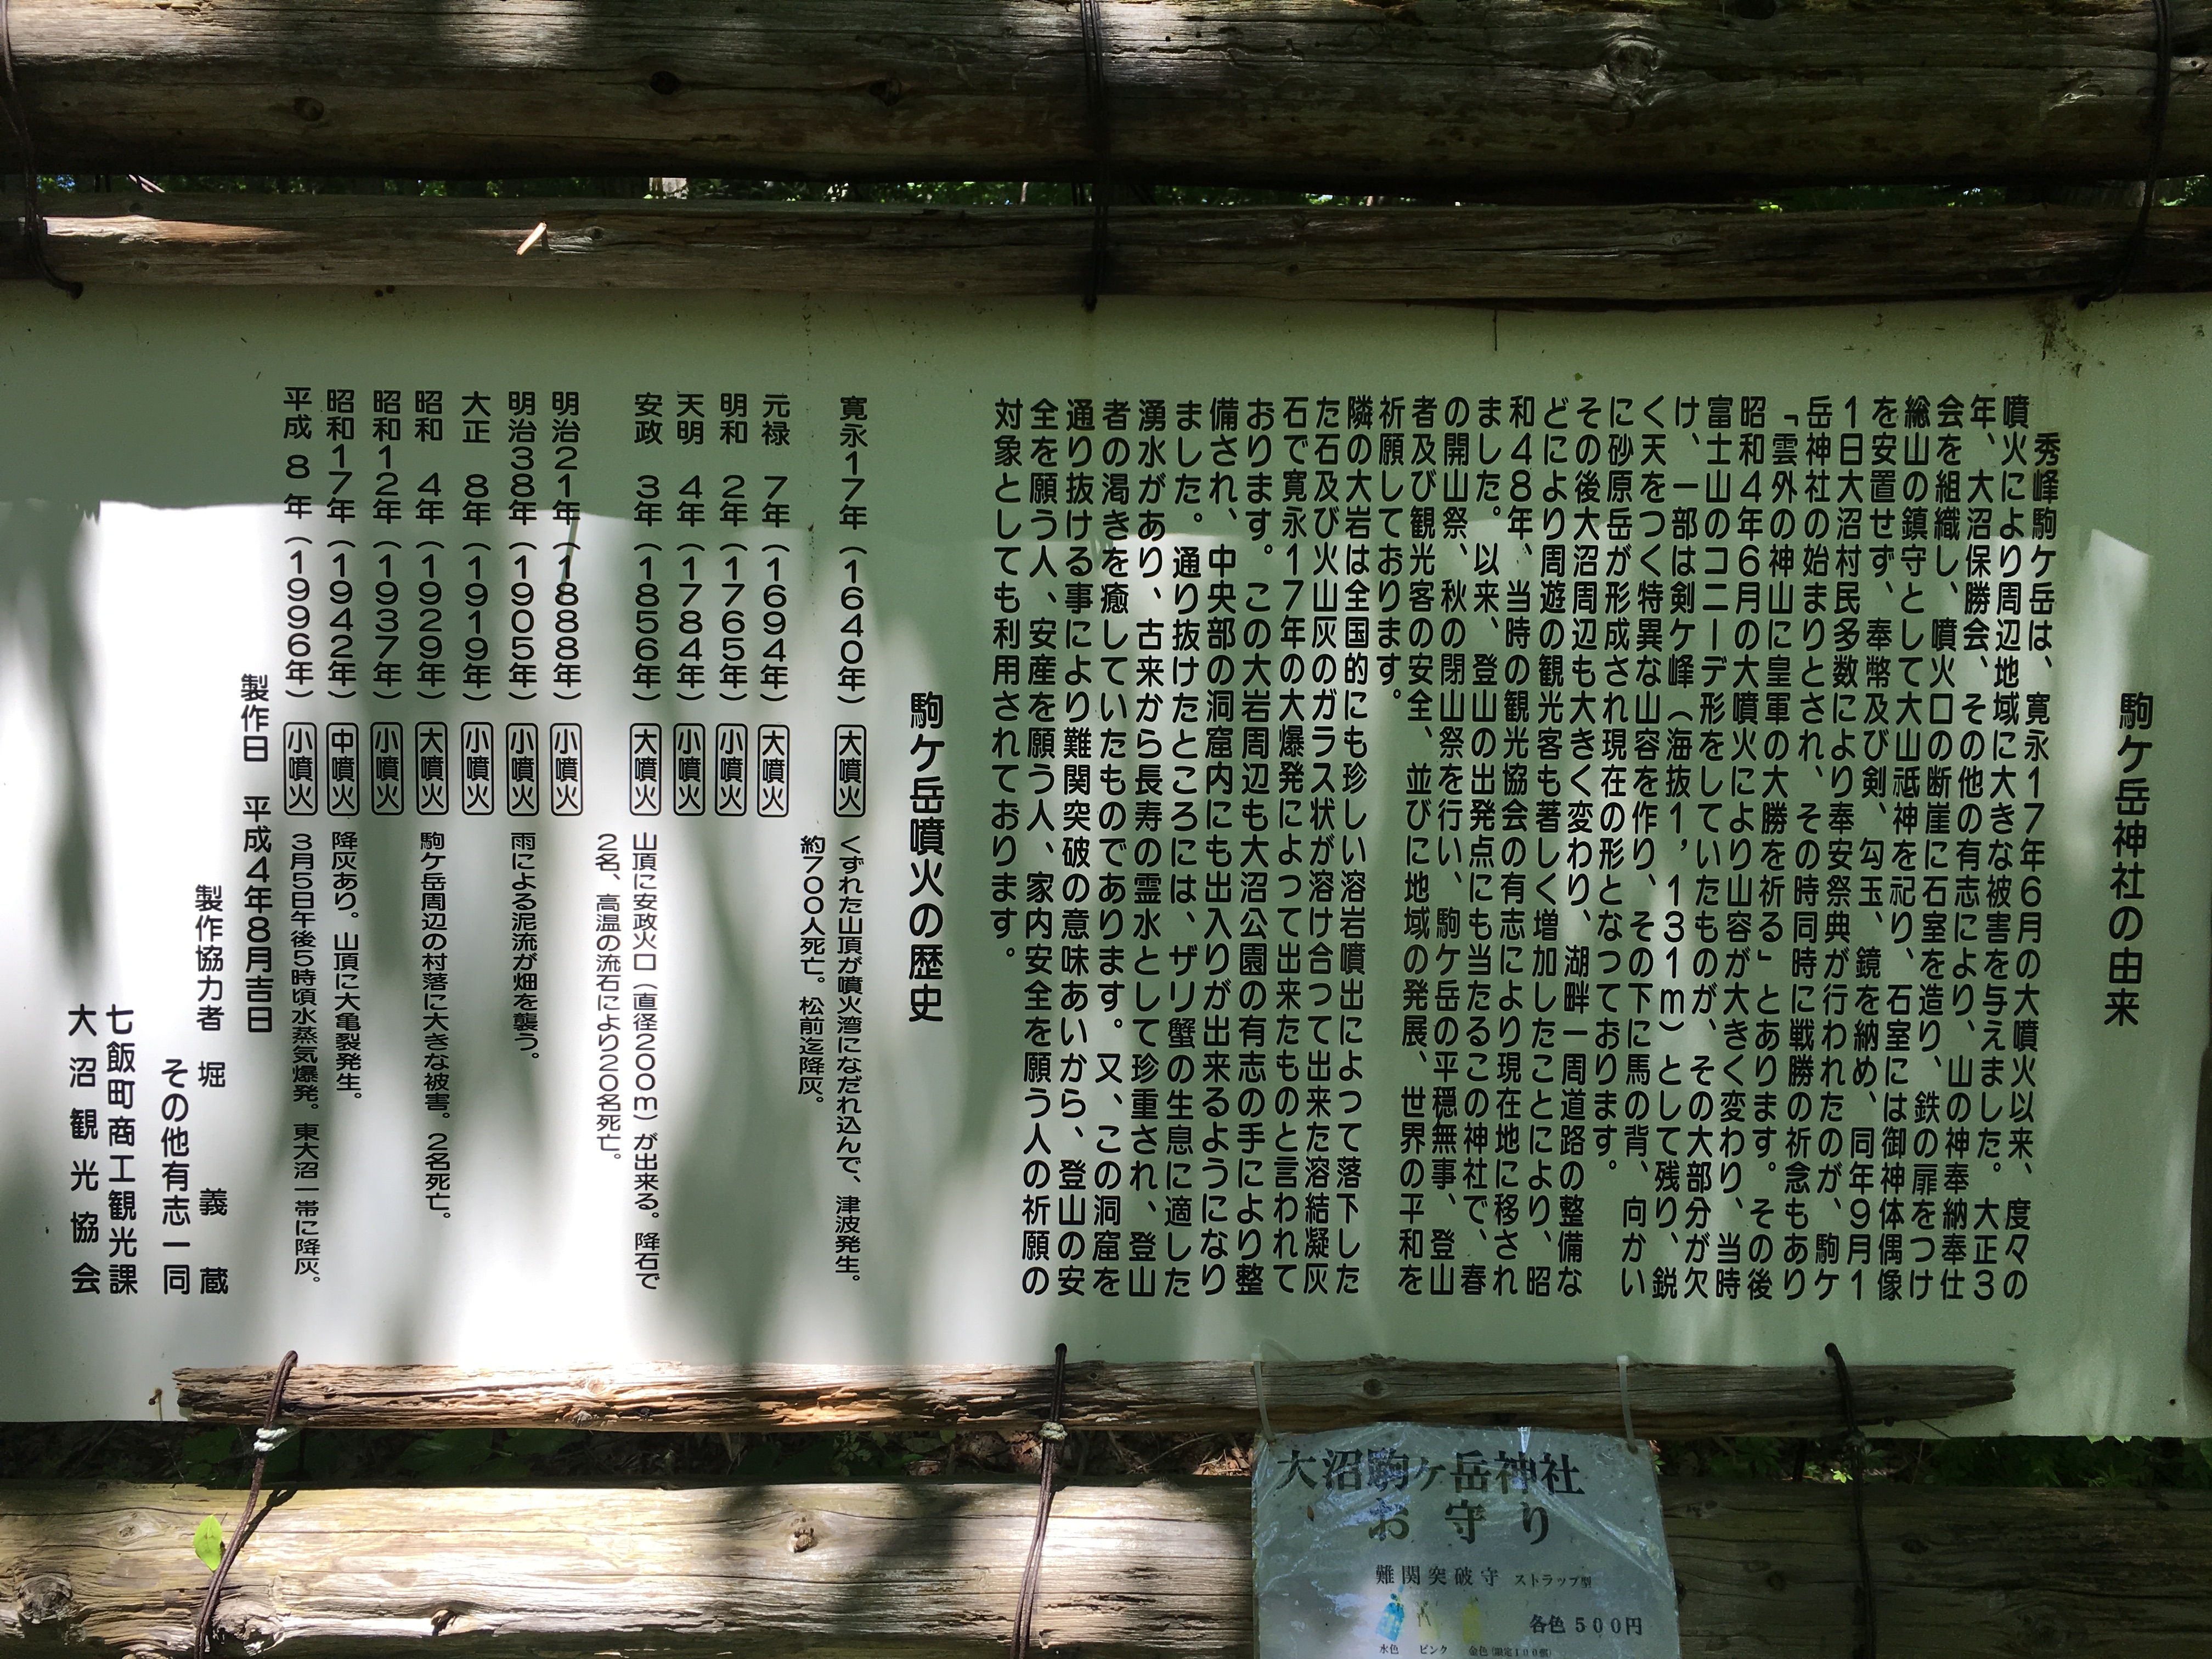 駒ケ岳神社の由来
秀峰駒ケ岳は、寛永17年6月の大噴火以来、度々の
噴火により周辺地域に大きな被害を与えました。大正3
年、大沼保勝会、その他の有志により、山の神奉納奉仕
会を組織し、噴火口の断崖に石室を造り、鉄の扉をつけ
総山の鎮守として大山祗神を祀り、石室には御神体偶像
を安置せず、奉幣及び剣、勾玉、鏡を納め、同年9月1
1日大沼村民多数により奉安祭典が行われたのが、駒ケ
岳神社の始まりとされ、その時同時に戦勝の祈念もあり
「雲外の神山に皇軍の大勝を祈る」とあります。その後
昭和4年6月の大噴火により山容が大きく変わり、当時
富士山のコニーデ形をしていたものが、その大部分が欠
け、一部は剣ケ峰（海抜1，131m）として残り、鋭
く天をつく特異な山容を作り、その下に馬の背、向かい
に砂原岳が形成され現在の形となっております。
その後大沼周辺も大きく変わり、湖畔一周道路の整備な
どにより周遊の観光客も著しく増加したことにより、昭
和48年、当時の観光協会の有志により現在地に移され
ました。以来、登山の出発点にも当たるこの神社で、春
の開山祭、秋の閉山祭を行い、駒ケ岳の平穏無事、登山
者及び観光客の安全、並びに地域の発展、世界の平和を
祈願しております。
隣の大岩は全国的にも珍しい溶岩噴出によって落下した
た石及び火山灰のガラス状が溶け合つて出来た溶結凝灰
石で寛永17年の大爆発によって出来たものと言われて
おります。この大岩周辺も大沼公園の有志の手により整
備され、中央部の洞窟内にも出入りが出来るようになり
ました。通り抜けたところには、ザリ蟹の生息に適した
湧水があり、古来から長寿の霊水として珍重され、登山
者の渇きを癒していたものであります。又、この洞窟を
通り抜ける事により難関突破の意味あいから、登山の安
全を願う人、安産を願う人、家内安全を願う人の祈願の
対象としても利用されております。
駒ケ岳噴火の歴史
寛永17年（1640年）大噴火 くずれた山頂が噴火湾になだれ込んで、津波発生。
約700人死亡。松前迄降灰。
元禄 7年（1694年）大噴火
明和 2年（1765年）小噴火
天明 4年（1784年）小噴火
安政 3年（1856年）大噴火 山頂に安政火口（直径200m）が出来る。降石で
2名、高温の流石により20名死亡。
明治21年（1888年）小噴火
明治38年（1905年）小噴火 雨による泥流が畑を襲う。
大正 8年（1919年）小噴火
昭和 4年（1929年）大噴火 駒ケ岳周辺の村落に大きな被害。2名死亡。
昭和12年（1937年）小噴火
昭和17年（1942年）中噴火 降灰あり。山頂に大亀裂発生。
平成 8年（1996年）小噴火 3月5日午後5時頃水蒸気爆発。東大沼一帯に降灰。
製作日 平成4年8月吉日
製作協力者 堀 義蔵
その他有志一同
七飯町商工観光課
大沼観光協会
大沼駒ヶ岳神社
お守り
難関突破守 ストラップ型
各色500円
水色 ピンク 金色(限定100個)